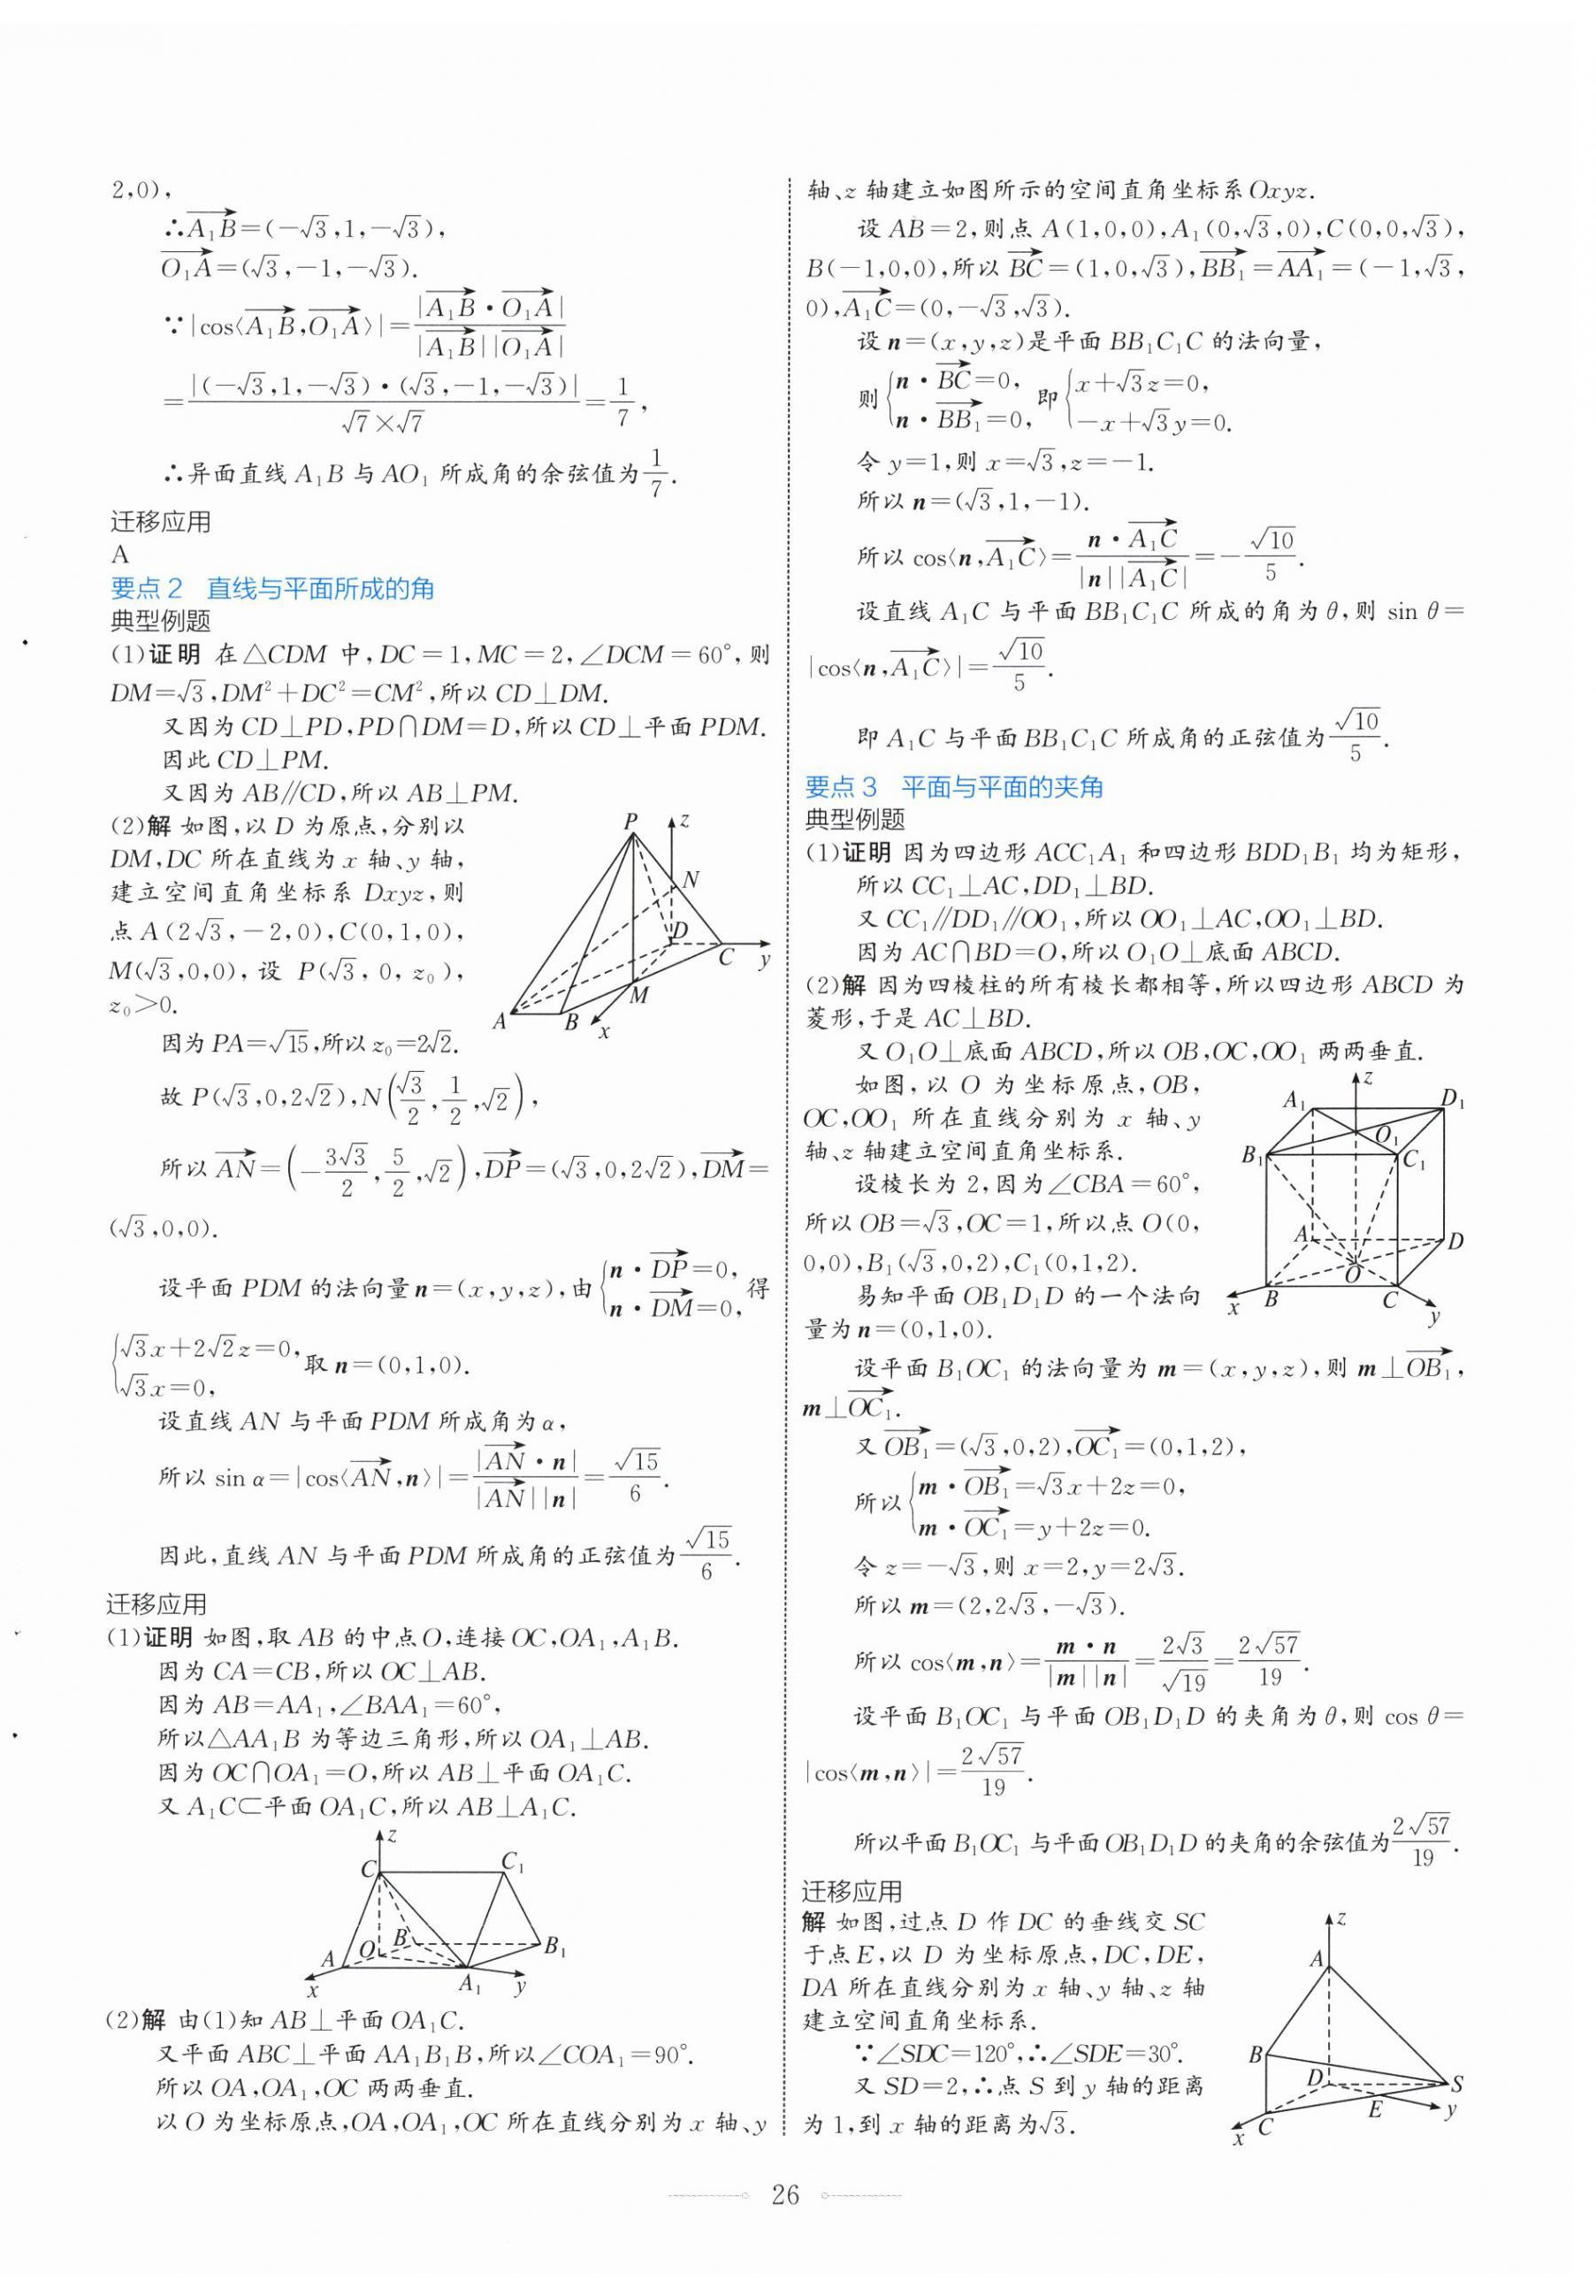 2,0),
∴A₁B→=(−√3,1,−√3),
O₁A→=(√3,−1,−√3).
∵|cos⟨A₁B→,O₁A→⟩|=|A₁B→·O₁A→|/|A₁B→||O₁A→|
=|(−√3,1,−√3)·(√3,−1,−√3)|/√7×√7=1/7,
∴异面直线 A₁B 与 AO₁ 所成角的余弦值为1/7.
迁移应用
A
要点2 直线与平面所成的角
典型例题
(1)证明 在△CDM 中,DC=1,MC=2,∠DCM=60°,则
DM=√3,DM²+DC²=CM²,所以 CD⊥DM.
又因为 CD⊥PD,PD∩DM=D,所以 CD⊥平面 PDM.
因此 CD⊥PM.
又因为 AB∥CD,所以 AB⊥PM.
(2)解 如图,以 D 为原点,分别以
DM,DC 所在直线为 x 轴、y 轴,
建立空间直角坐标系 Dxyz,则
点 A(2√3,−2,0),C(0,1,0),
M(√3,0,0),设 P(√3,0,z₀),
z₀>0.
P z N D C y M A B x
因为 PA=√15,所以 z₀=2√2.
故 P(√3,0,2√2),N(√3/2,1/2,√2),
所以 AN→=(−3√3/2,5/2,√2),DP→=(√3,0,2√2),DM→=
(√3,0,0).
设平面 PDM 的法向量 n=(x,y,z),由{n·DP→=0, n·DM→=0,得
{√3x+2√2z=0, √3x=0,取 n=(0,1,0).
设直线 AN 与平面 PDM 所成角为 α,
所以 sin α=|cos⟨AN→,n⟩|=|AN→·n|/|AN→||n|=√15/6.
因此,直线 AN 与平面 PDM 所成角的正弦值为√15/6.
迁移应用
(1)证明 如图,取 AB 的中点 O,连接 OC,OA₁,A₁B.
因为 CA=CB,所以 OC⊥AB.
因为 AB=AA₁,∠BAA₁=60°,
所以△AA₁B 为等边三角形,所以 OA₁⊥AB.
因为 OC∩OA₁=O,所以 AB⊥平面 OA₁C.
又 A₁C⊂平面 OA₁C,所以 AB⊥A₁C.
z C C₁ A O B B₁ x A₁ y
(2)解 由(1)知 AB⊥平面 OA₁C.
又平面 ABC⊥平面 AA₁B₁B,所以∠COA₁=90°.
所以 OA,OA₁,OC 两两垂直.
以 O 为坐标原点,OA,OA₁,OC 所在直线分别为 x 轴、y
轴、z 轴建立如图所示的空间直角坐标系 Oxyz.
设 AB=2,则点 A(1,0,0),A₁(0,√3,0),C(0,0,√3),
B(−1,0,0),所以 BC→=(1,0,√3),BB₁→=AA₁→=(−1,√3,
0),A₁C→=(0,−√3,√3).
设 n=(x,y,z)是平面 BB₁C₁C 的法向量,
则{n·BC→=0, n·BB₁→=0,即{x+√3z=0, −x+√3y=0.
令 y=1,则 x=√3,z=−1.
所以 n=(√3,1,−1).
所以 cos⟨n,A₁C→⟩=n·A₁C→/|n||A₁C→|=−√10/5.
设直线 A₁C 与平面 BB₁C₁C 所成的角为 θ,则 sin θ=
|cos⟨n,A₁C→⟩|=√10/5.
即 A₁C 与平面 BB₁C₁C 所成角的正弦值为√10/5.
要点3 平面与平面的夹角
典型例题
(1)证明 因为四边形 ACC₁A₁ 和四边形 BDD₁B₁ 均为矩形,
所以 CC₁⊥AC,DD₁⊥BD.
又 CC₁∥DD₁∥OO₁,所以 OO₁⊥AC,OO₁⊥BD.
因为 AC∩BD=O,所以 O₁O⊥底面 ABCD.
(2)解 因为四棱柱的所有棱长都相等,所以四边形 ABCD 为
菱形,于是 AC⊥BD.
又 O₁O⊥底面 ABCD,所以 OB,OC,OO₁ 两两垂直.
如图,以 O 为坐标原点,OB,
OC,OO₁ 所在直线分别为 x 轴、y
轴、z 轴建立空间直角坐标系.
设棱长为 2,因为∠CBA=60°,
所以 OB=√3,OC=1,所以点 O(0,
0,0),B₁(√3,0,2),C₁(0,1,2).
易知平面 OB₁D₁D 的一个法向
量为 n=(0,1,0).
z A₁ D₁ O₁ B₁ C₁ A D O x B C y
设平面 B₁OC₁ 的法向量为 m=(x,y,z),则 m⊥OB₁→,
m⊥OC₁→.
又 OB₁→=(√3,0,2),OC₁→=(0,1,2),
所以{m·OB₁→=√3x+2z=0, m·OC₁→=y+2z=0.
令 z=−√3,则 x=2,y=2√3.
所以 m=(2,2√3,−√3).
所以 cos⟨m,n⟩=m·n/|m||n|=2√3/√19=2√57/19.
设平面 B₁OC₁ 与平面 OB₁D₁D 的夹角为 θ,则 cos θ=
|cos⟨m,n⟩|=2√57/19.
所以平面 B₁OC₁ 与平面 OB₁D₁D 的夹角的余弦值为2√57/19.
迁移应用
解 如图,过点 D 作 DC 的垂线交 SC
于点 E,以 D 为坐标原点,DC,DE,
DA 所在直线分别为 x 轴、y 轴、z 轴
建立空间直角坐标系.
∵∠SDC=120°,∴∠SDE=30°.
又 SD=2,∴点 S 到 y 轴的距离
为 1,到 x 轴的距离为√3.
z A B D S E y x C
26